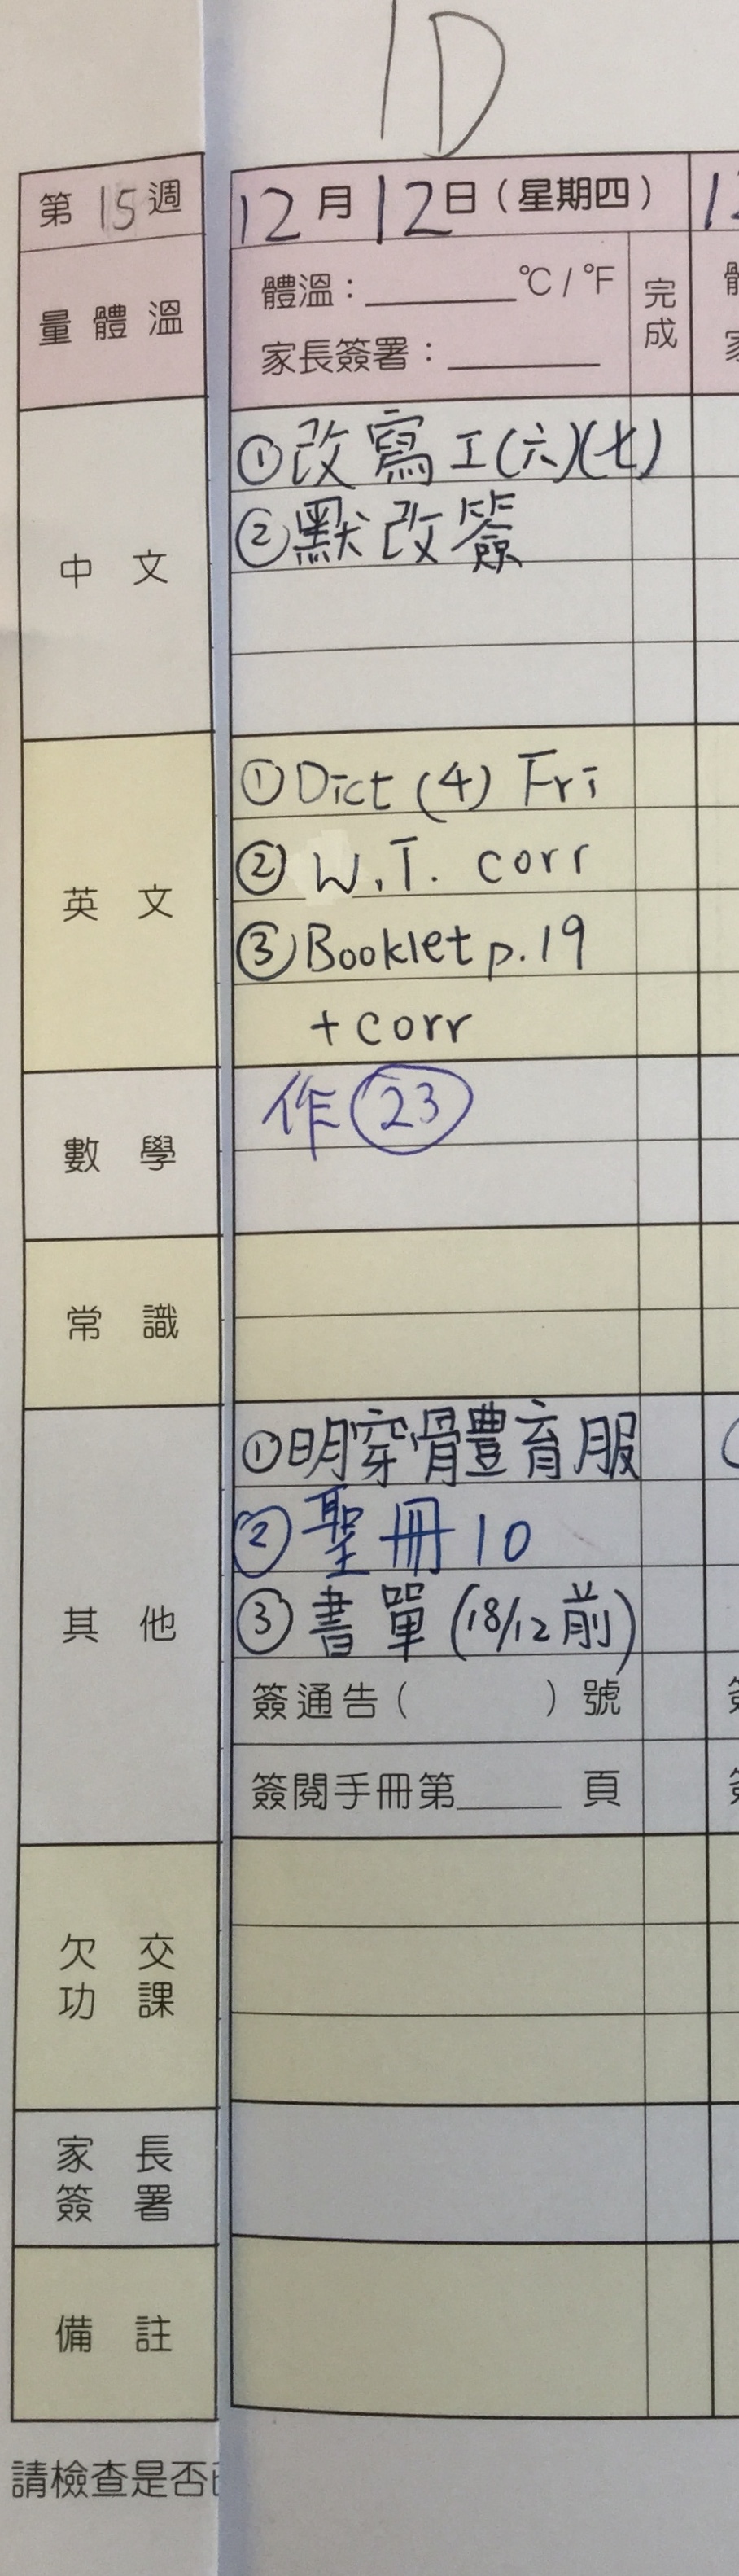 1D
第15週
12月12日(星期四)
量體溫
體溫:______℃/℉
完成
家長簽署:______
中文
①改寫工(六)(七)
②默改簽
英文
①Dict (4) Fri
② W.T. corr
③Booklet p.19
+ corr
數學
作㉓
常識
其他
①明穿體育服
②聖冊10
③書單(18/12前)
簽通告( )號
簽閱手冊第____頁
欠交功課
家長簽署
備註
請檢查是否